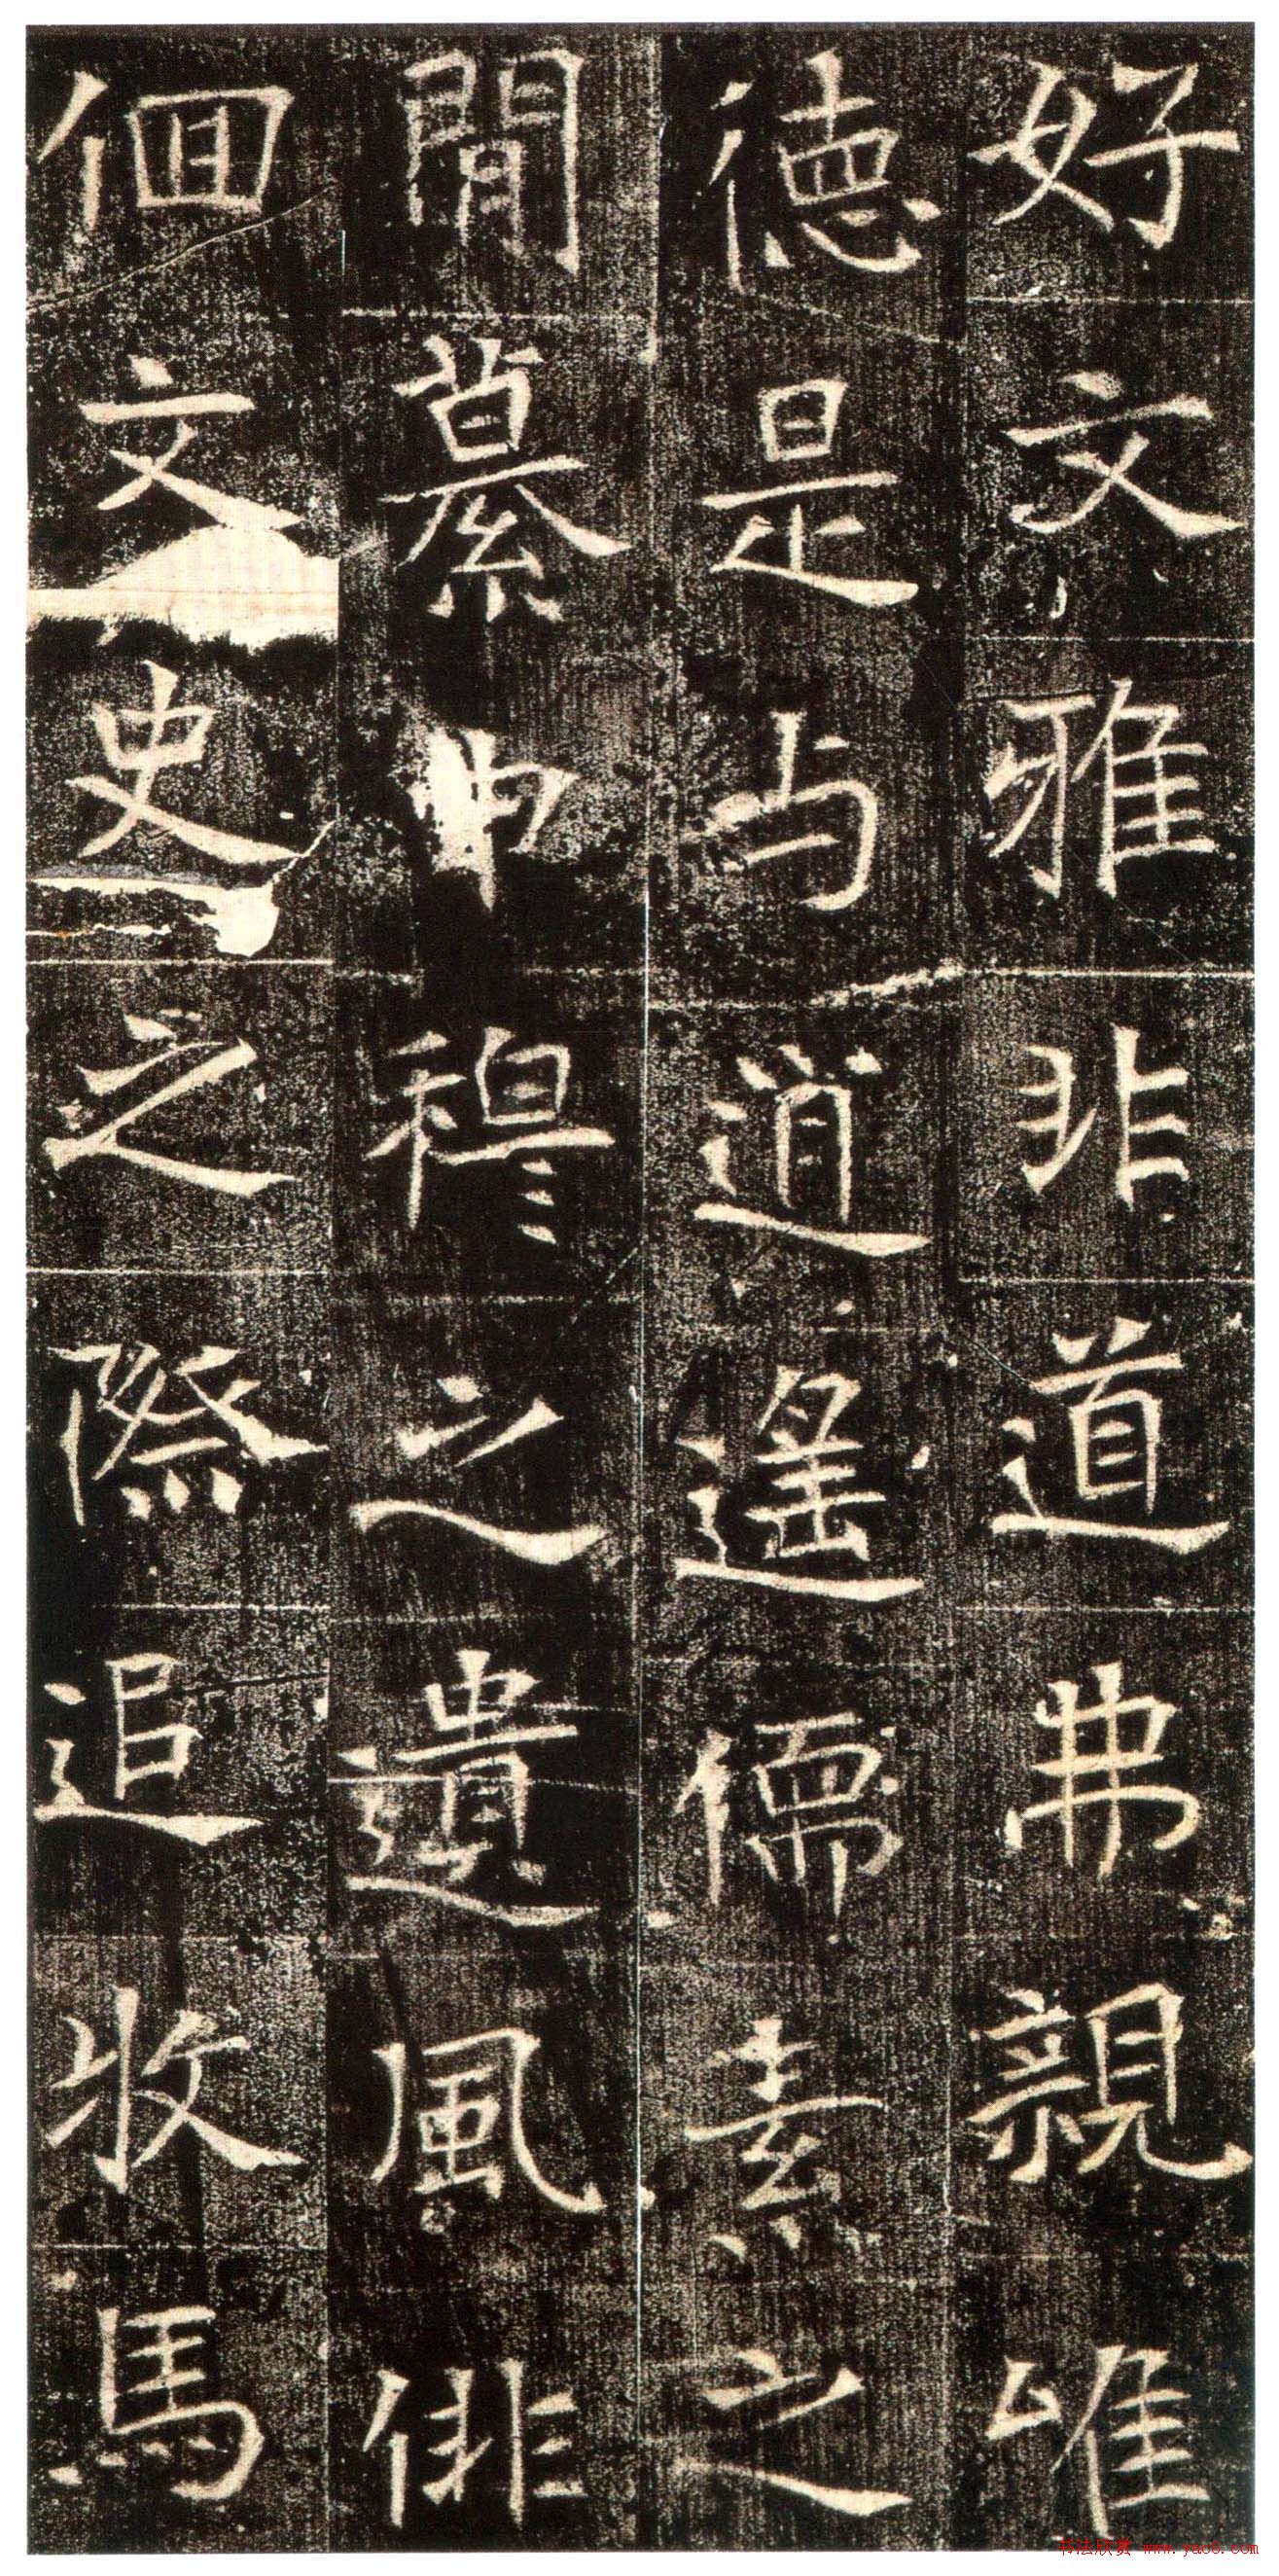 好文雅非道弗親唯
德是与逍遙儒素之
間綦申穆之遺風俳
佪文史之際追牧馬
书法欣赏 www.yac8.com